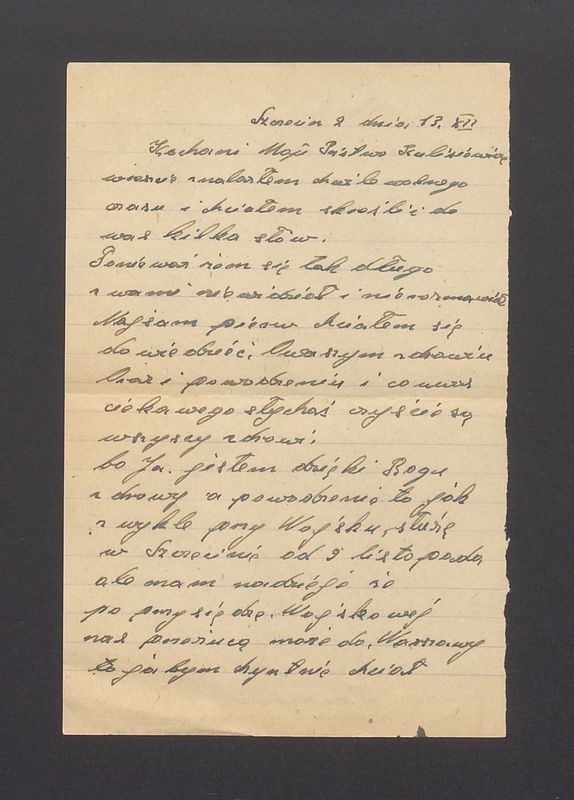 Szczecin 2 dnia, 13. XII
Kochani Moji Państwo
wiencie znalazłem chwile wolnego
czasu i chciałem skreślić do
was kilka słów.
Poniewaź rzem się tak długo
z wami nie widział i nie rozmawiał
Najsam pierw chciałem się
dowiedzieć, Owaszym zdrowiu
i powodzeniu i co uwas
ciekawego słychać czyście są
wszyscy zdrowi,
bo Ja. jestem dzięki Bogu
zdrowy a powodzenie to jak
zwykle przy Wojsku, słuźę
w Szczecinie od 9 listopada,
ale mam nadzieję źe
po przysiędze, Wojskowej
nas przeżucą może do, Warszawy
to ja bym chyntnie chciał